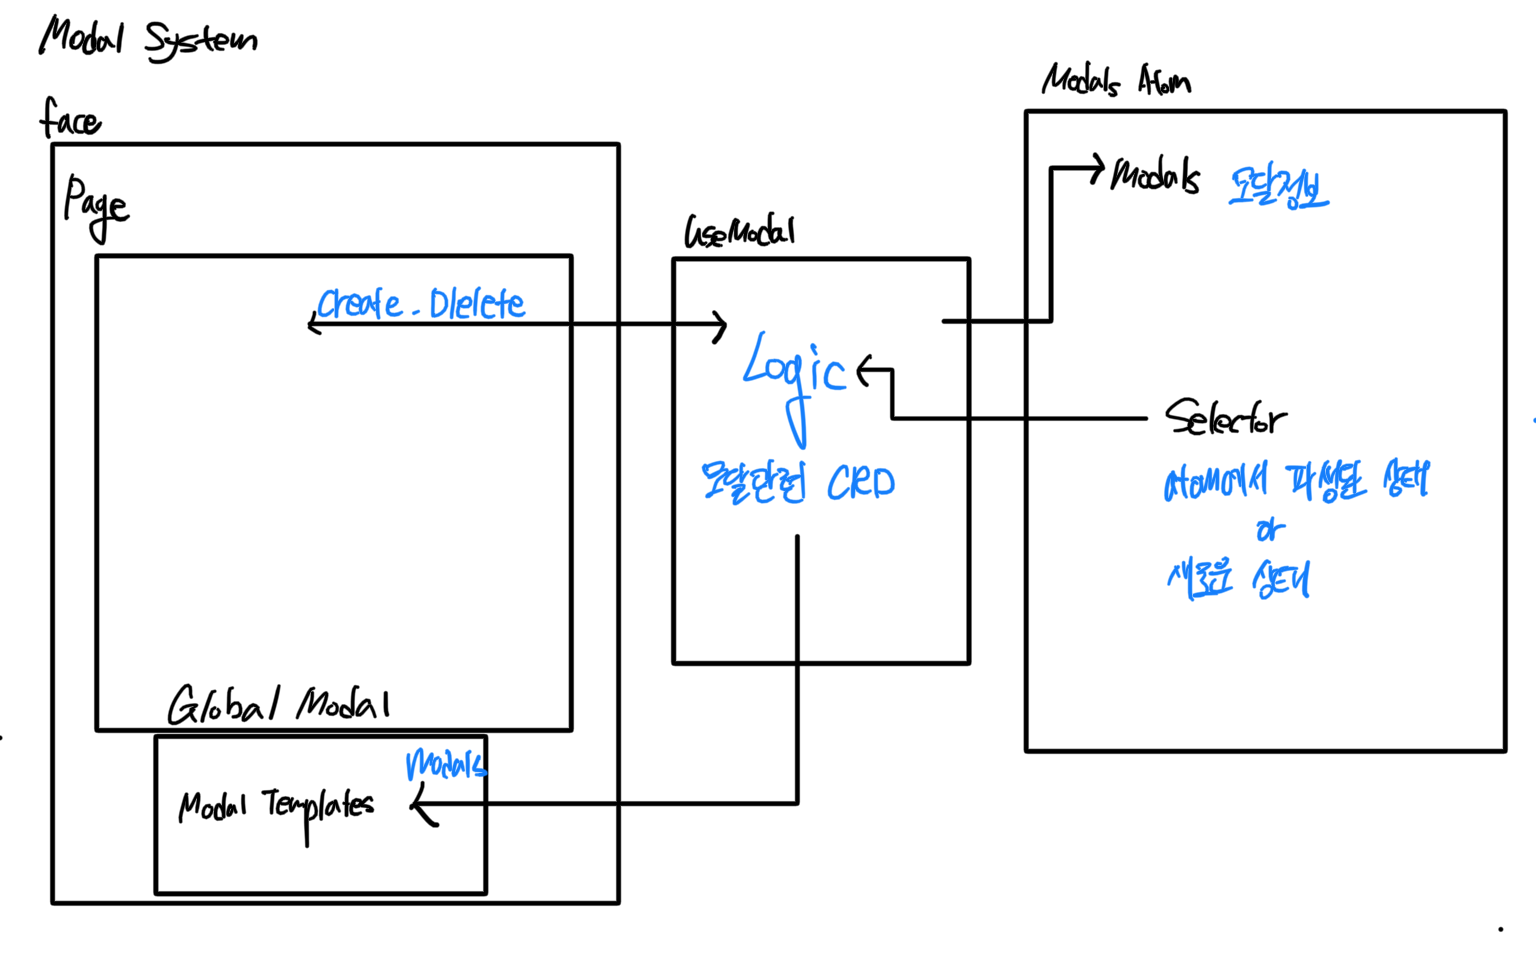 Modal System
face
Page
Create - Dlelete
Global Modal
Modals
Modal Templates
UseModal
Logic
모달관련 CRD
Modals Atom
Modals 모달정보
Selector
atom에서 파생된 상태
or
새로운 상태